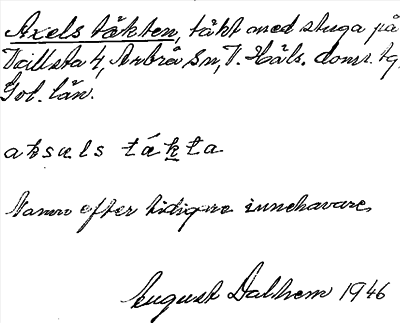 Axels täkten, täkt med stuga på
Vallsta 4, Arbrå Sn, V. Häls. doms. tg,
Gvl. län.
aksæls tákta
Namn efter tidigare innehavare,
August Dalhem 1946